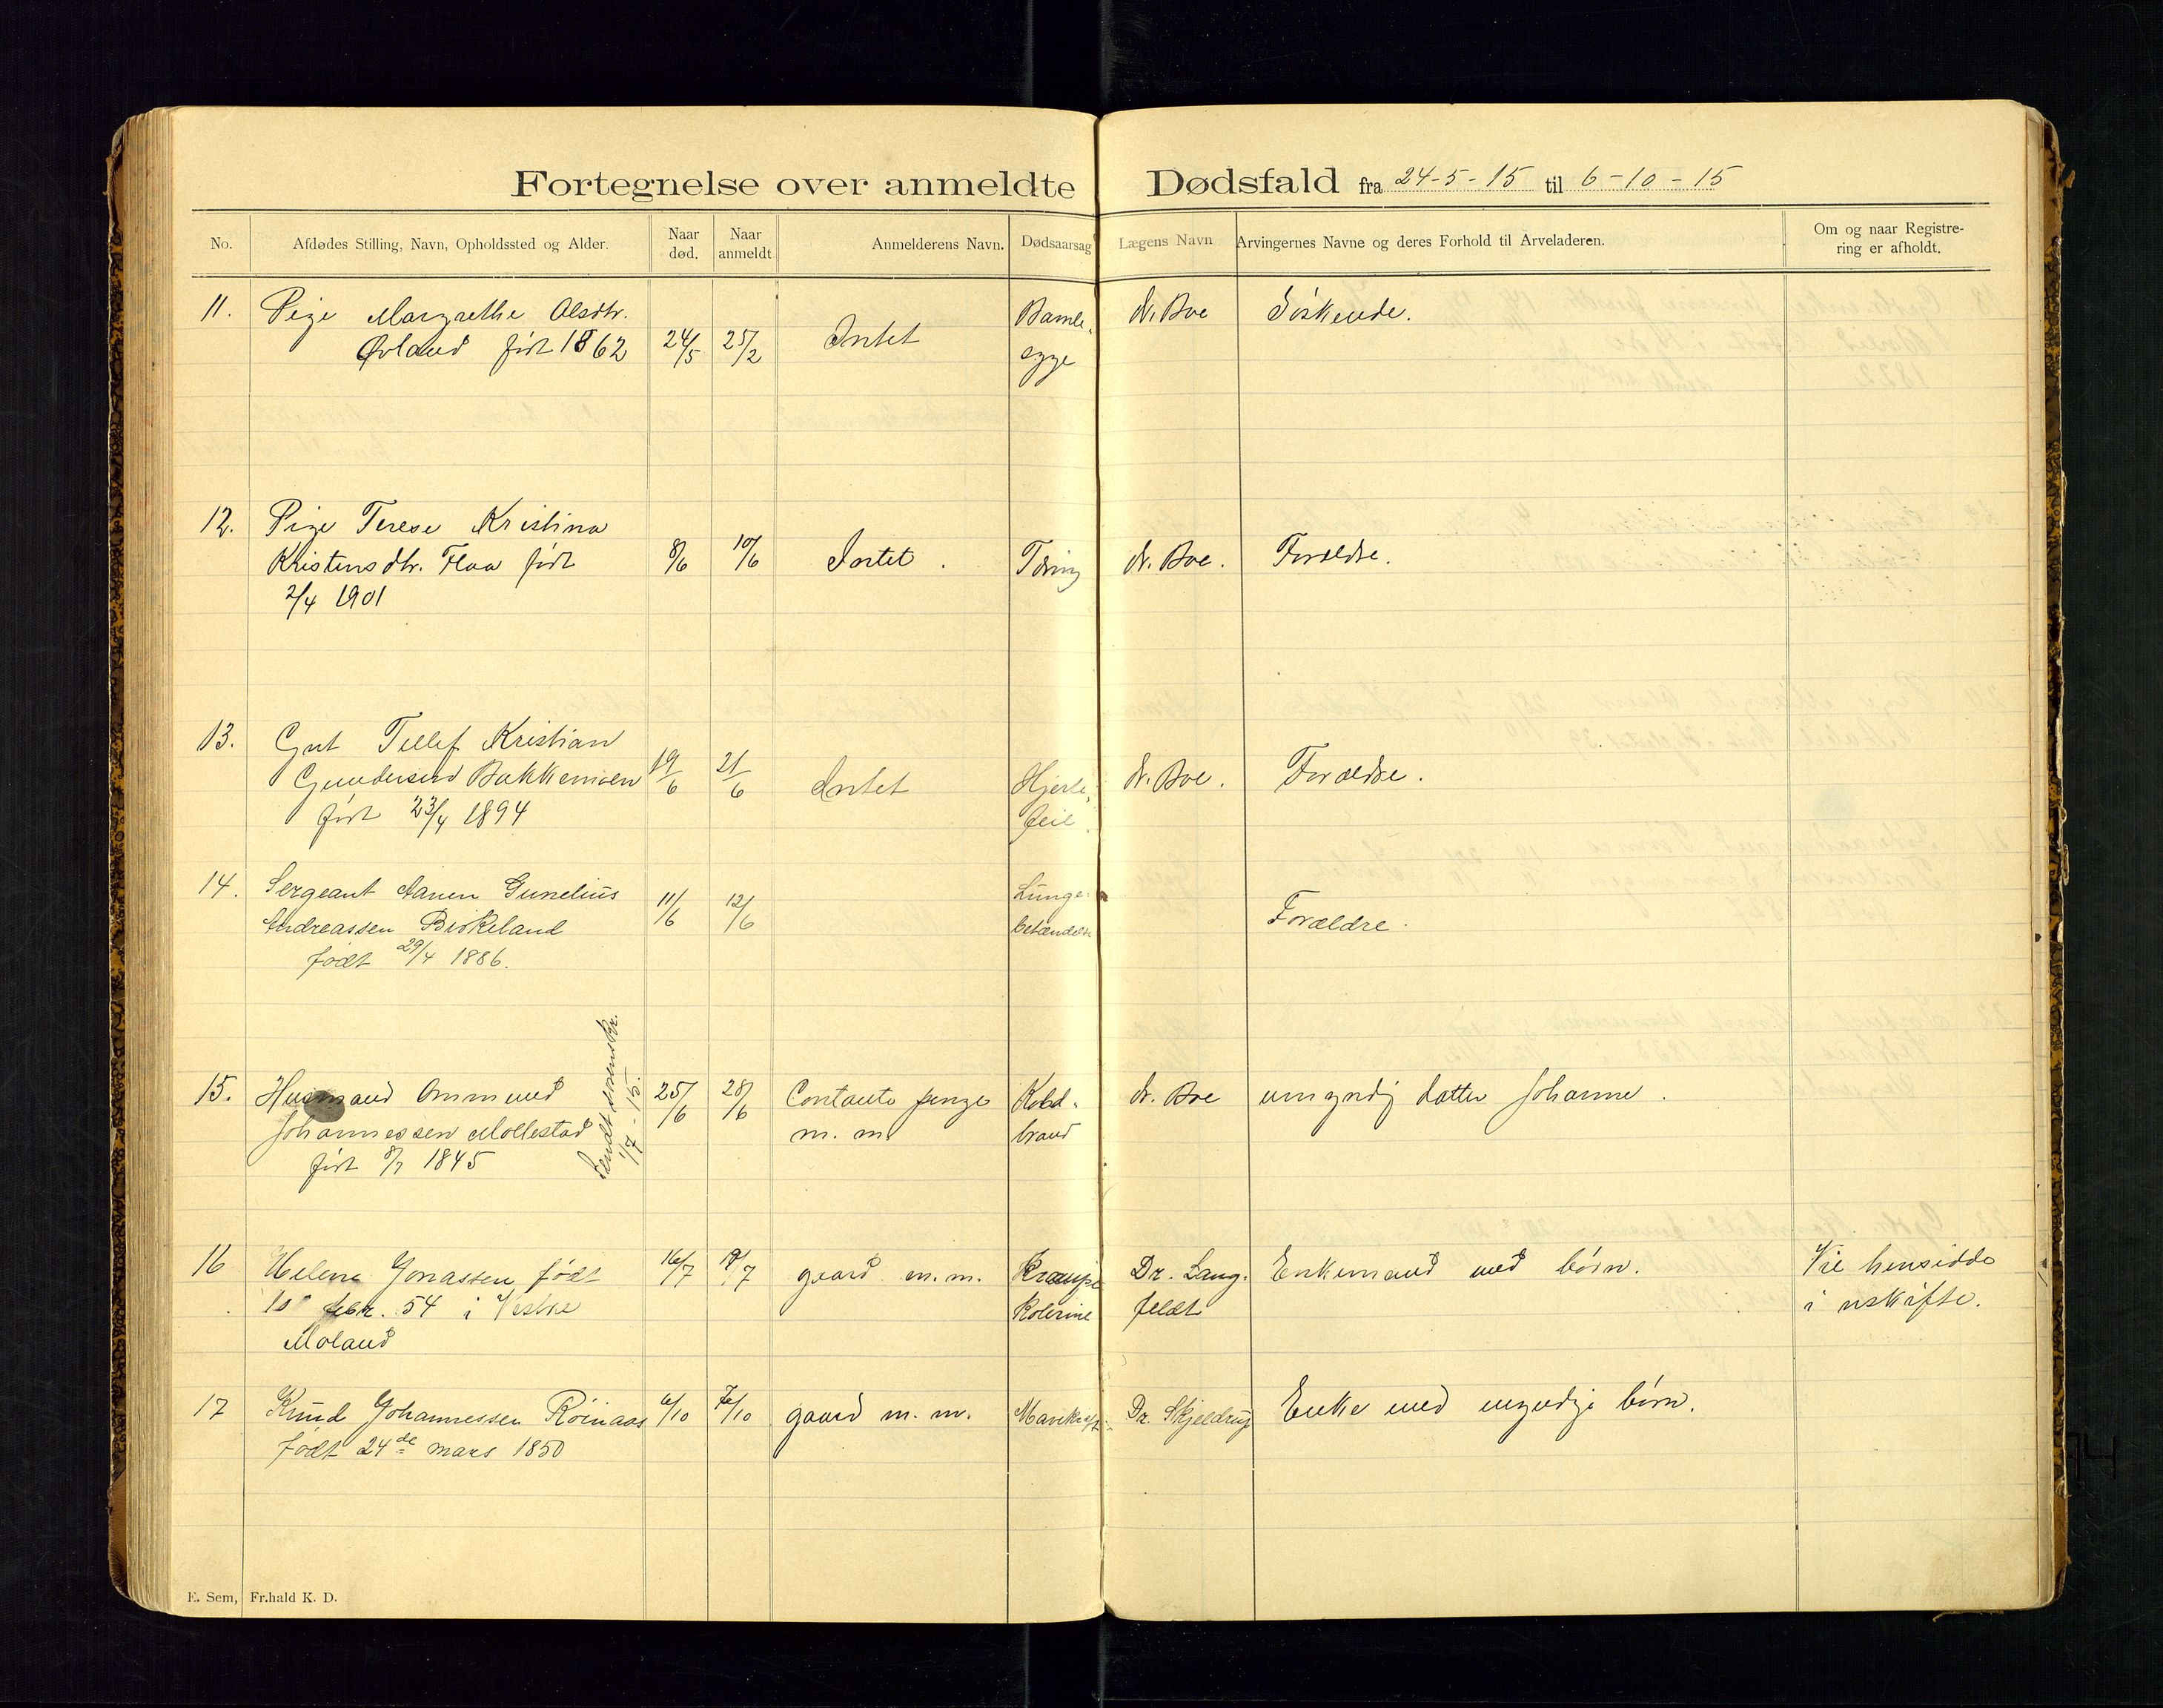 Fortegnelse over anmeldte Dødsfald fra 24-5-15 til 6-10-15
No.
Afdødes Stilling, Navn, Opholdssted og Alder.
Naar død.
Naar anmeldt
Anmelderens Navn.
Dødsaarsag
Lægens Navn
Arvingernes Navne og deres Forhold til Arveladeren.
Om og naar Registre-
ring er afholdt.
11. Pige Margrethe Olsdtr.
Øvland født 1862
24/5
25/2
Intet
dr. Boe
Söskende.
12. Pige Terese Kristina
Kristensdtr. Flaa født
2/4 1901
8/6
10/6
Intet.
Tæring
dr. Boe.
Forældre.
13. Gut Tellef Kristian
Gundersen Bakkemoen
født 23/4 1894
19/6
21/6
Intet
Hjerte-
feil
dr. Boe.
Forældre.
14. Sergeant Aanen Gunelius
Andreassen Birkeland
født 29/4 1886.
11/6
12/6
Lunge-
betændelse
Forældre.
15. Husmand Ommund
Johannessen Mollestad
født 8/7 1845
Sendt sorenskr.
1/7-15.
25/6
28/6
Contante penge
m. m.
Kold-
brand
dr. Boe
umyndig datter Johanne.
16 Helene Jonassen født
10 febr. 54 i Vestre
Moland
16/7
19/7
gaard m.m.
Krampe
Kolerine
Dr. Lang-
feldt
Enkemand med börn.
Vil hensidde
i uskifte.
17 Knud Johannessen Röinaas
født 24de mars 1850
6/10
7/10
gaard m. m.
Mavekræft
Dr. Skjeldrup
Enke med myndige börn.
E. Sem, Fr.hald K. D.